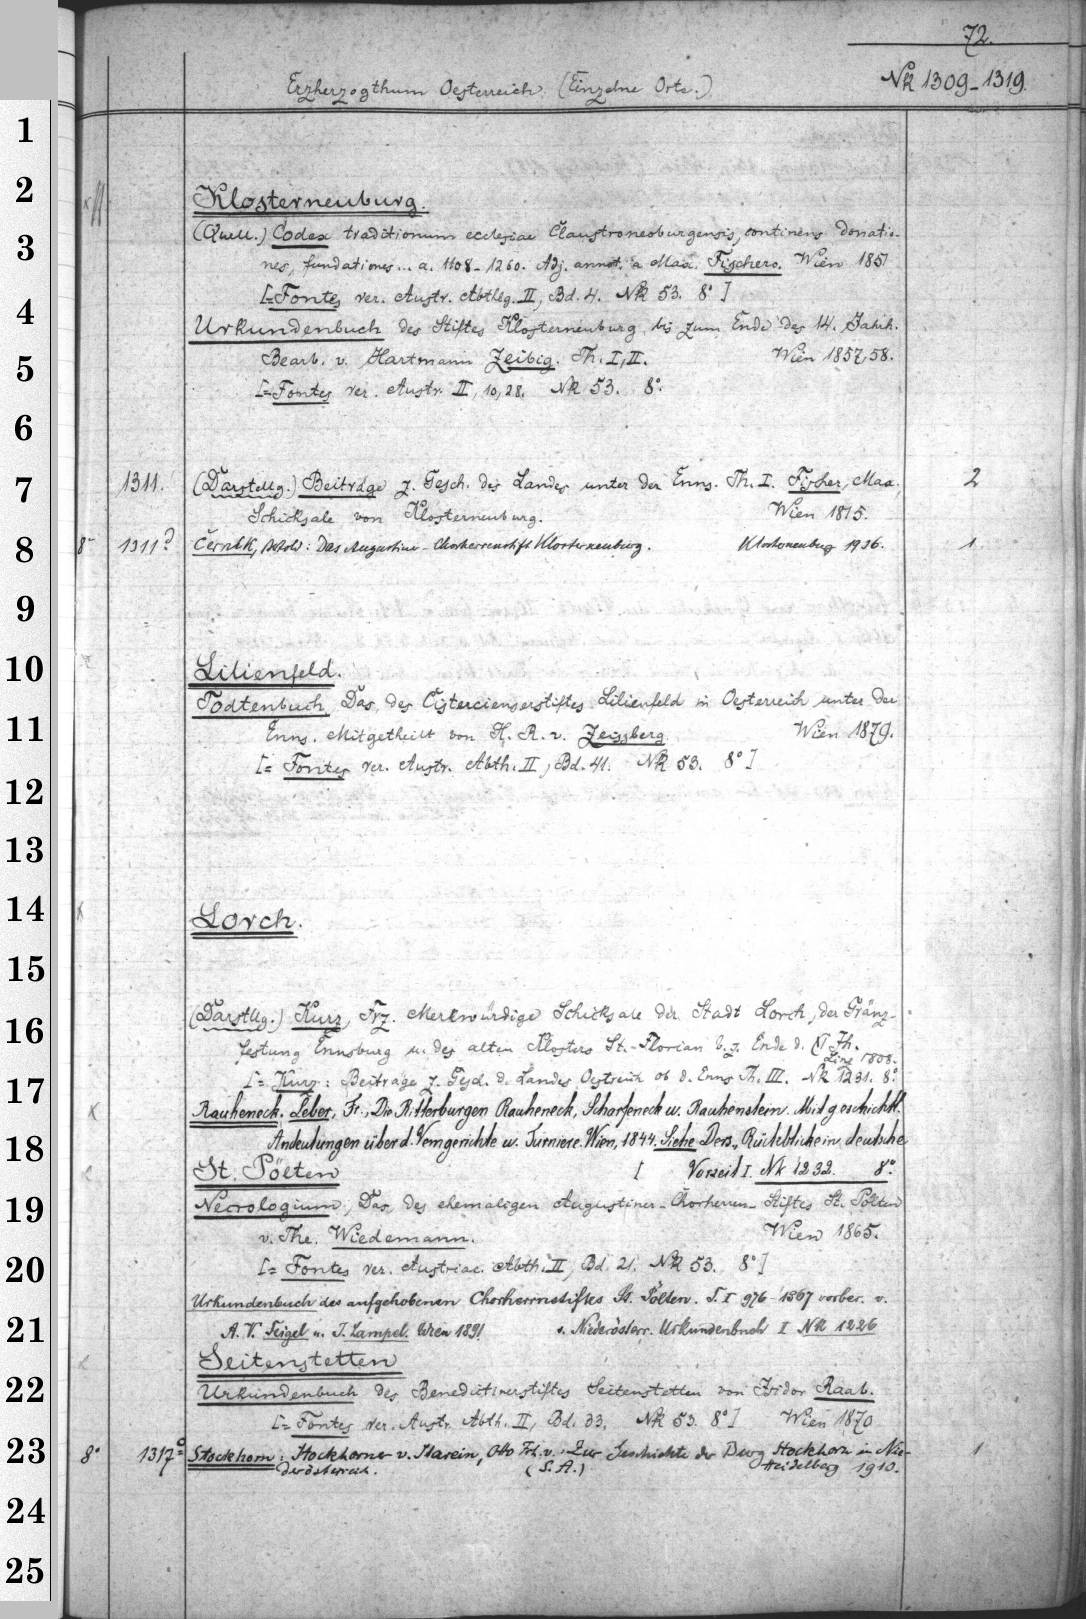 72.
Erzherzogthum Oesterreich. (Einzelne Orte.)
Nk 1309-1319.
1
2
3
4
5
6
7
8
9
10
11
12
13
14
15
16
17
18
19
20
21
22
23
24
25
Klosterneuburg.
(Quell.) Codex traditionum ecclesiae Claustroneoburgensis, continens donatio-
nes, fundationes... a. 1108-1260. Adj. annot. a Max. Fischero. Wien 1851
[=Fontes rer. Austr. Abthlg. II, Bd. 4. Nk 53. 8° ]
Urkundenbuch des Stiftes Klosterneuburg bis zum Ende des 14. Jahrh.
Bearb. v. Hartmann Zeibig. Th. I, II. Wien 1857,58.
[=Fontes rer. Austr. II, 10, 28. Nk 53. 8°.
1311. (Darstellg.) Beiträge z. Gesch. des Landes unter der Enns. Th. I. Fischer, Max, 2
Schicksale von Klosterneuburg. Wien 1815.
8° 1311 Černik, Berthold: Das Augustiner-Chorherrenstift Klosterneuburg. Klosterneuburg 1936. 1
Lilienfeld.
Todtenbuch, Das, des Cistercienserstiftes Lilienfeld in Oesterreich unter der
Enns. Mitgetheilt von H. R. v. Zeissberg. Wien 1879.
[= Fontes rer. Austr. Abth. II, Bd. 41. Nk 53. 8° ]
Lorch.
(Darstllg.) Kurz, Frz. Merkwürdige Schicksale der Stadt Lorch, der Gränz-
festung Ennsburg u. des alten Klosters St.-Florian b. z. Ende d. XI Jh.
Linz 1808.
[= Kurz: Beiträge z. Gesch. d. Landes Oestreich ob d. Enns Th. III. Nk 1231. 8°.
Rauheneck. Leber, Fr., Die Ritterburgen Rauheneck, Scharfeneck u. Rauhenstein. Mit geschichtl.
Andeutungen über d. Vemgerichte u. Turniere. Wien, 1844. Siehe Ders., Rückblicke in deutsche
[ Vorzeit I. Nk 1232. 8°.
St. Pölten
Necrologium, Das, des ehemaligen Augustiner-Chorherren-Stiftes St. Pölten
v. The. Wiedemann. Wien 1865.
[= Fontes rer. Austriac. Abth. II, Bd. 21. Nk 53. 8° ]
Urkundenbuch des aufgehobenen Chorherrnstiftes St. Pölten. T. I 976-1367 vorber. v.
A. V. Feigel u. J. Lampel. Wien 1891 s. Niederösterr. Urkundenbuch I Nk 1226
Seitenstetten
Urkundenbuch des Benedictinerstiftes Seitenstetten von Isidor Raab.
[= Fontes rer. Austr. Abth. II, Bd. 33. Nk 53. 8° ] Wien 1870
8° 1317 Stockhorn: Stockhorner v. Starein, Otto Frh. v.: Zur Geschichte der Burg Stockhorn in Nie- 1
derösterreich. (S. A.) Heidelberg 1910.